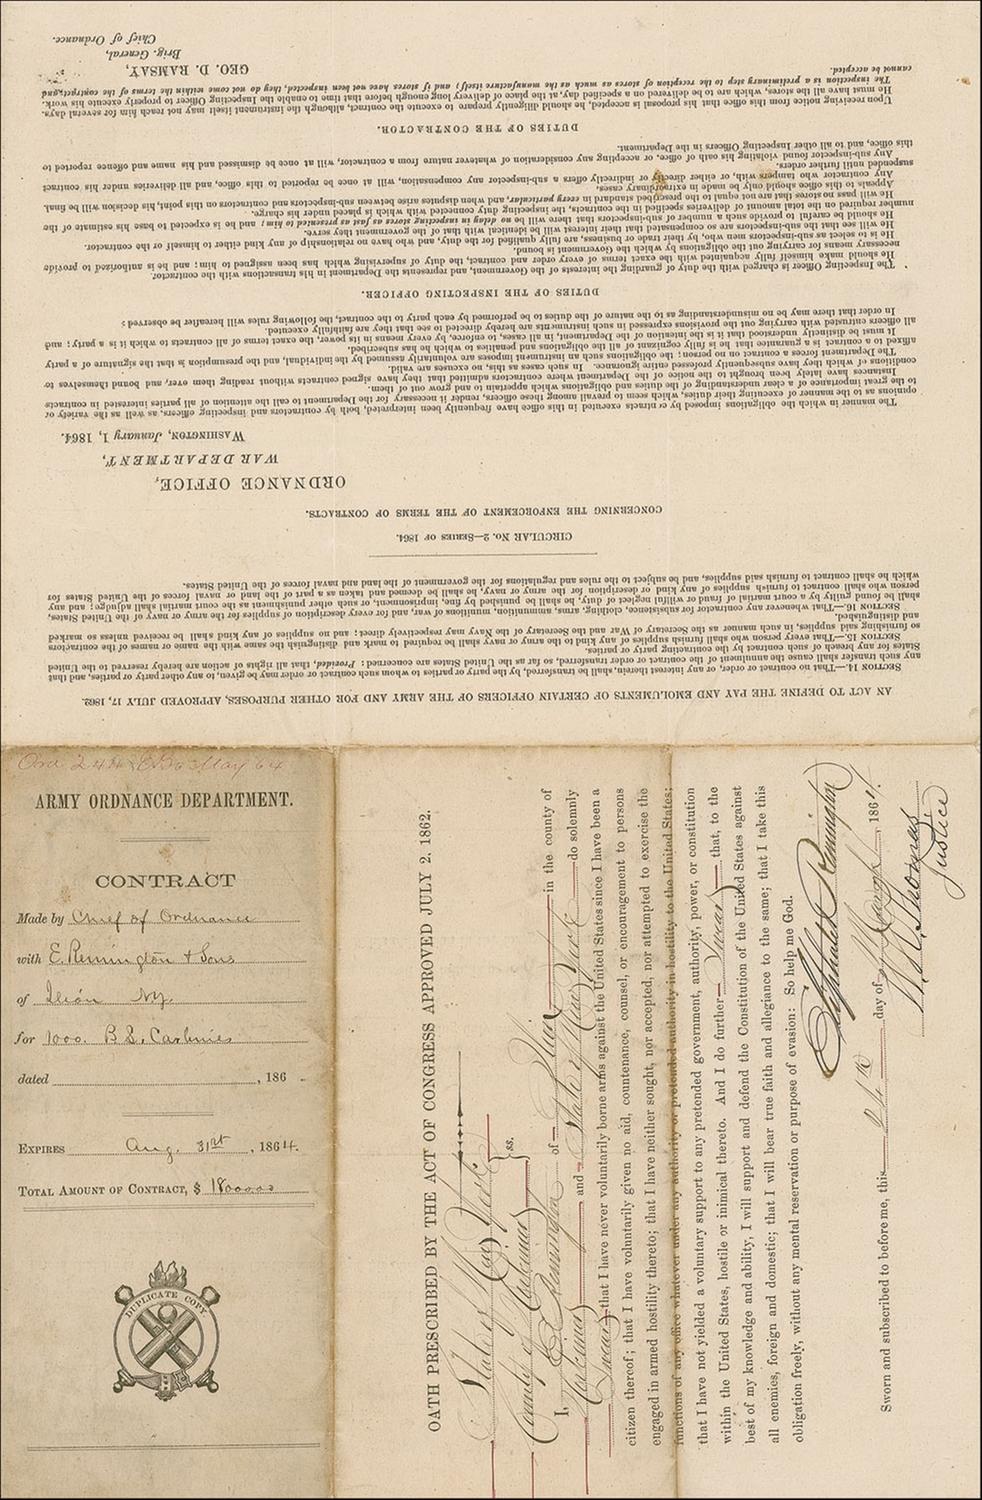 AN ACT TO DEFINE THE PAY AND EMOLUMENTS OF CERTAIN OFFICERS OF THE ARMY AND FOR OTHER PURPOSES, APPROVED JULY 17, 1862.
SECTION 14.—That no contract or order, or any interest therein, shall be transferred, by the party or parties to whom such contract or order may be given, to any other party or parties, and that
any such transfer shall cause the annulment of the contract or order transferred, so far as the United States are concerned: Provided, that all rights of action are hereby reserved to the United
States for any breach of such contract by the contracting party or parties.
SECTION 15.—That every person who shall furnish supplies of any kind to the army or navy shall be required to mark and distinguish the same with the name or names of the contractors
so furnishing said supplies, in such manner as the Secretary of War and the Secretary of the Navy may respectively direct; and no supplies of any kind shall be received unless so marked
and distinguished.
SECTION 16.—That whenever any contractor for subsistence, clothing, arms, ammunition, munitions of war, and for every description of supplies for the army or navy of the United States,
shall be found guilty by a court martial of fraud or wilful neglect of duty, he shall be punished by fine, imprisonment, or such other punishment as the court martial shall adjudge; and any
person who shall contract to furnish supplies of any kind or description for the army or navy, he shall be deemed and taken as a part of the land or naval forces of the United States for
which he shall contract to furnish said supplies, and be subject to the rules and regulations for the government of the land and naval forces of the United States.
CIRCULAR No. 2—SERIES OF 1864.
CONCERNING THE ENFORCEMENT OF THE TERMS OF CONTRACTS.
ORDNANCE OFFICE,
WAR DEPARTMENT,
WASHINGTON, January 1, 1864.
The manner in which the obligations imposed by contracts executed in this office have frequently been interpreted, both by contractors and inspecting officers, as well as the variety of
opinions as to the manner of executing their duties, which seem to prevail among these officers, render it necessary for the Department to call the attention of all parties interested in contracts
to the great importance of a clear understanding of the duties and obligations which appertain to and grow out of them.
Instances have lately been brought to the notice of the Department where contractors admitted that they have signed contracts without reading them over, and bound themselves to
conditions of which they have subsequently professed entire ignorance. In such cases as this, no excuses are valid.
The Department forces a contract on no person; the obligations such an instrument imposes are voluntarily assumed by the individual, and the presumption is that the signature of a party
affixed to a contract is a guarantee that he is fully cognizant of all the obligations and penalties to which he has subscribed.
It must be distinctly understood that it is the intention of the Department, in all cases, to enforce, by every means in its power, the exact terms of all contracts to which it is a party; and
all officers entrusted with carrying out the provisions expressed in such instruments are hereby directed to see that they are faithfully executed.
In order that there may be no misunderstanding as to the nature of the duties to be performed by each party to the contract, the following rules will hereafter be observed:
DUTIES OF THE INSPECTING OFFICER.
The Inspecting Officer is charged with the duty of guarding the interests of the Government, and represents the Department in his transactions with the contractor.
He should make himself fully acquainted with the exact terms of every order and contract, the duty of supervising which has been assigned to him; and he is authorized to provide
necessary means for carrying out the obligations by which the Government is bound.
He is to select as sub-inspectors men who, by their trade or business, are fully qualified for the duty, and who have no relationship of any kind either to himself or the contractor.
He will see that the sub-inspectors are so compensated that their interest will be identical with that of the government they serve.
He should be careful to provide such a number of sub-inspectors that there will be no delay in inspecting stores as fast as presented to him; and he is expected to base his estimate of the
number required on the total amount of deliveries specified in the contracts, the inspecting duty connected with which is placed under his charge.
He will pass no stores that are not equal to the prescribed standard in every particular, and when disputes arise between sub-inspectors and contractors on this point, his decision will be final.
Appeals to this office should only be made in extraordinary cases.
Any contractor who tampers with, or either directly or indirectly offers a sub-inspector any compensation, will at once be reported to this office, and all deliveries under his contract
suspended until further orders.
Any sub-inspector found violating his oath of office, or accepting any consideration of whatever nature from a contractor, will at once be dismissed and his name and offence reported to
this office, and to all other Inspecting Officers in the Department.
DUTIES OF THE CONTRACTOR.
Upon receiving notice from this office that his proposal is accepted, he should diligently prepare to execute the contract, although the instrument itself may not reach him for several days.
He must have all the stores, which are to be delivered on a specified day, at the place of delivery long enough before that time to enable the Inspecting Officer to properly execute his work.
The inspection is a preliminary step to the reception of stores as much as the manufacture itself; and if stores have not been inspected, they do not come within the terms of the contract, and
cannot be accepted.
GEO. D. RAMSAY,
Brig. General,
Chief of Ordnance.
May 64
ARMY ORDNANCE DEPARTMENT.
CONTRACT
Made by Chief of Ordnance
with E. Remington & Sons
of Ilion NY.
for 1000. B. L. Carbines
dated , 186 .
EXPIRES Aug. 31st, 1864.
TOTAL AMOUNT OF CONTRACT, $ 18000.00
DUPLICATE COPY
OATH PRESCRIBED BY THE ACT OF CONGRESS APPROVED JULY 2, 1862.
State of New York
County of Herkimer } ss.
I, E Remington of Ilion in the county of
Herkimer and State of New York do solemnly
Swear that I have never voluntarily borne arms against the United States since I have been a
citizen thereof; that I have voluntarily given no aid, countenance, counsel, or encouragement to persons
engaged in armed hostility thereto; that I have neither sought, nor accepted, nor attempted to exercise the
functions of any office whatever under any authority or pretended authority in hostility to the United States;
that I have not yielded a voluntary support to any pretended government, authority, power, or constitution
within the United States, hostile or inimical thereto. And I do further Swear that, to the
best of my knowledge and ability, I will support and defend the Constitution of the United States against
all enemies, foreign and domestic; that I will bear true faith and allegiance to the same; that I take this
obligation freely, without any mental reservation or purpose of evasion: So help me God.
Eliphalet Remington
Sworn and subscribed to before me, this 24th day of March, 1864.
Thomas
Justice